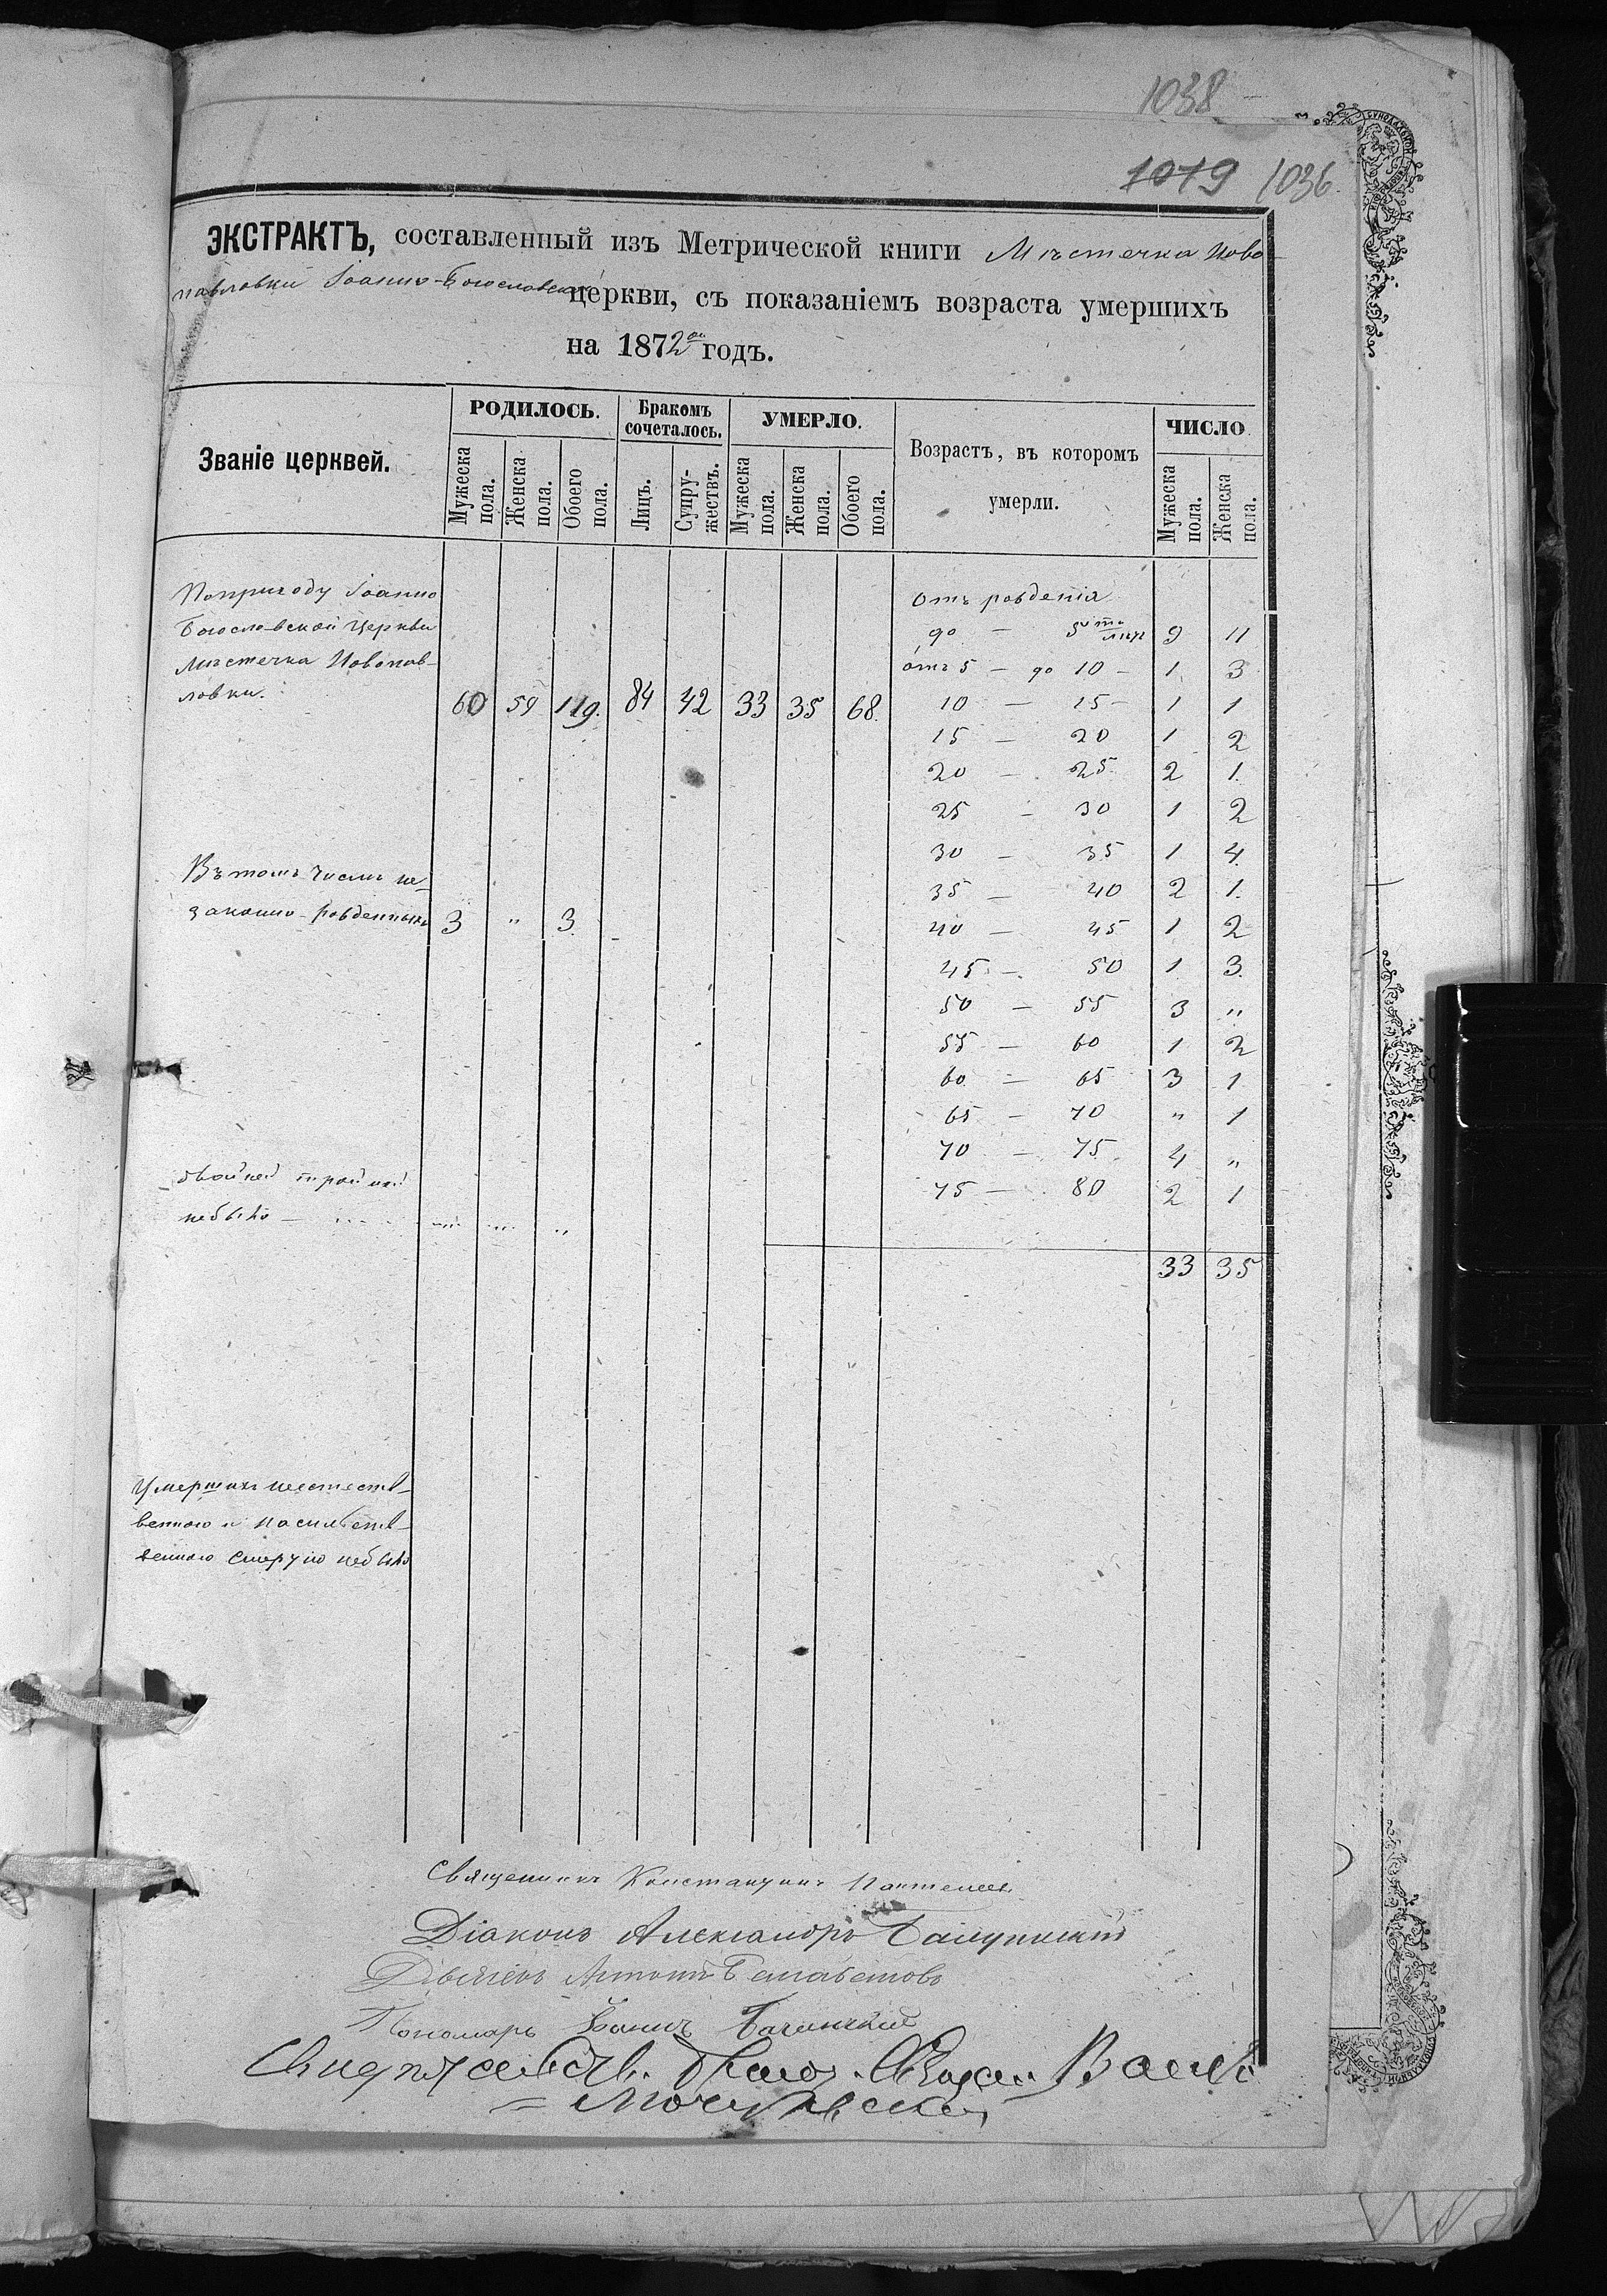 1038
1019 1036
ЭКСТРАКТЪ, составленный изъ Метрической книги Мѣстечка Ново-
павловки Іоанно-Богословской церкви, съ показаніемъ возраста умершихъ
на 1872ой годъ.
Званіе церквей.
РОДИЛОСЬ.
Мужеска пола.
Женска пола.
Обоего пола.
Бракомъ сочеталось.
Лицъ.
Супружествъ.
УМЕРЛО.
Мужеска пола.
Женска пола.
Обоего пола.
Возрастъ, въ которомъ
умерли.
ЧИСЛО
Мужеска пола.
Женска пола.
По приходу Іоанно
Богословской Церкви
мѣстечка Новопав-
ловки. 60 59 119. 84 42 33 35 68.
Отъ рожденія
до — 5ти лѣтъ 9 11
отъ 5 — до 10 — 1 3
10 — 15 — 1 1
15 — 20 1 2
20 — 25 2 1.
25 — 30 1 2
30 — 35 1 4
35 — 40 2 1.
40 — 45 1 2
45 — 50 1 3.
50 — 55 3 "
55 — 60 1 2
60 — 65 3 1
65 — 70 " 1
70 — 75 4 "
75 — 80 2 1
33 35
Въ томъ числѣ не-
законно-рожденныхъ 3 " 3.
двойней тройней
небыло —
Умершихъ неестеств-
венною и насильств-
венною смертію небыло
Священникъ Константинъ
Діаконъ Александръ
Антоній
Пономарь